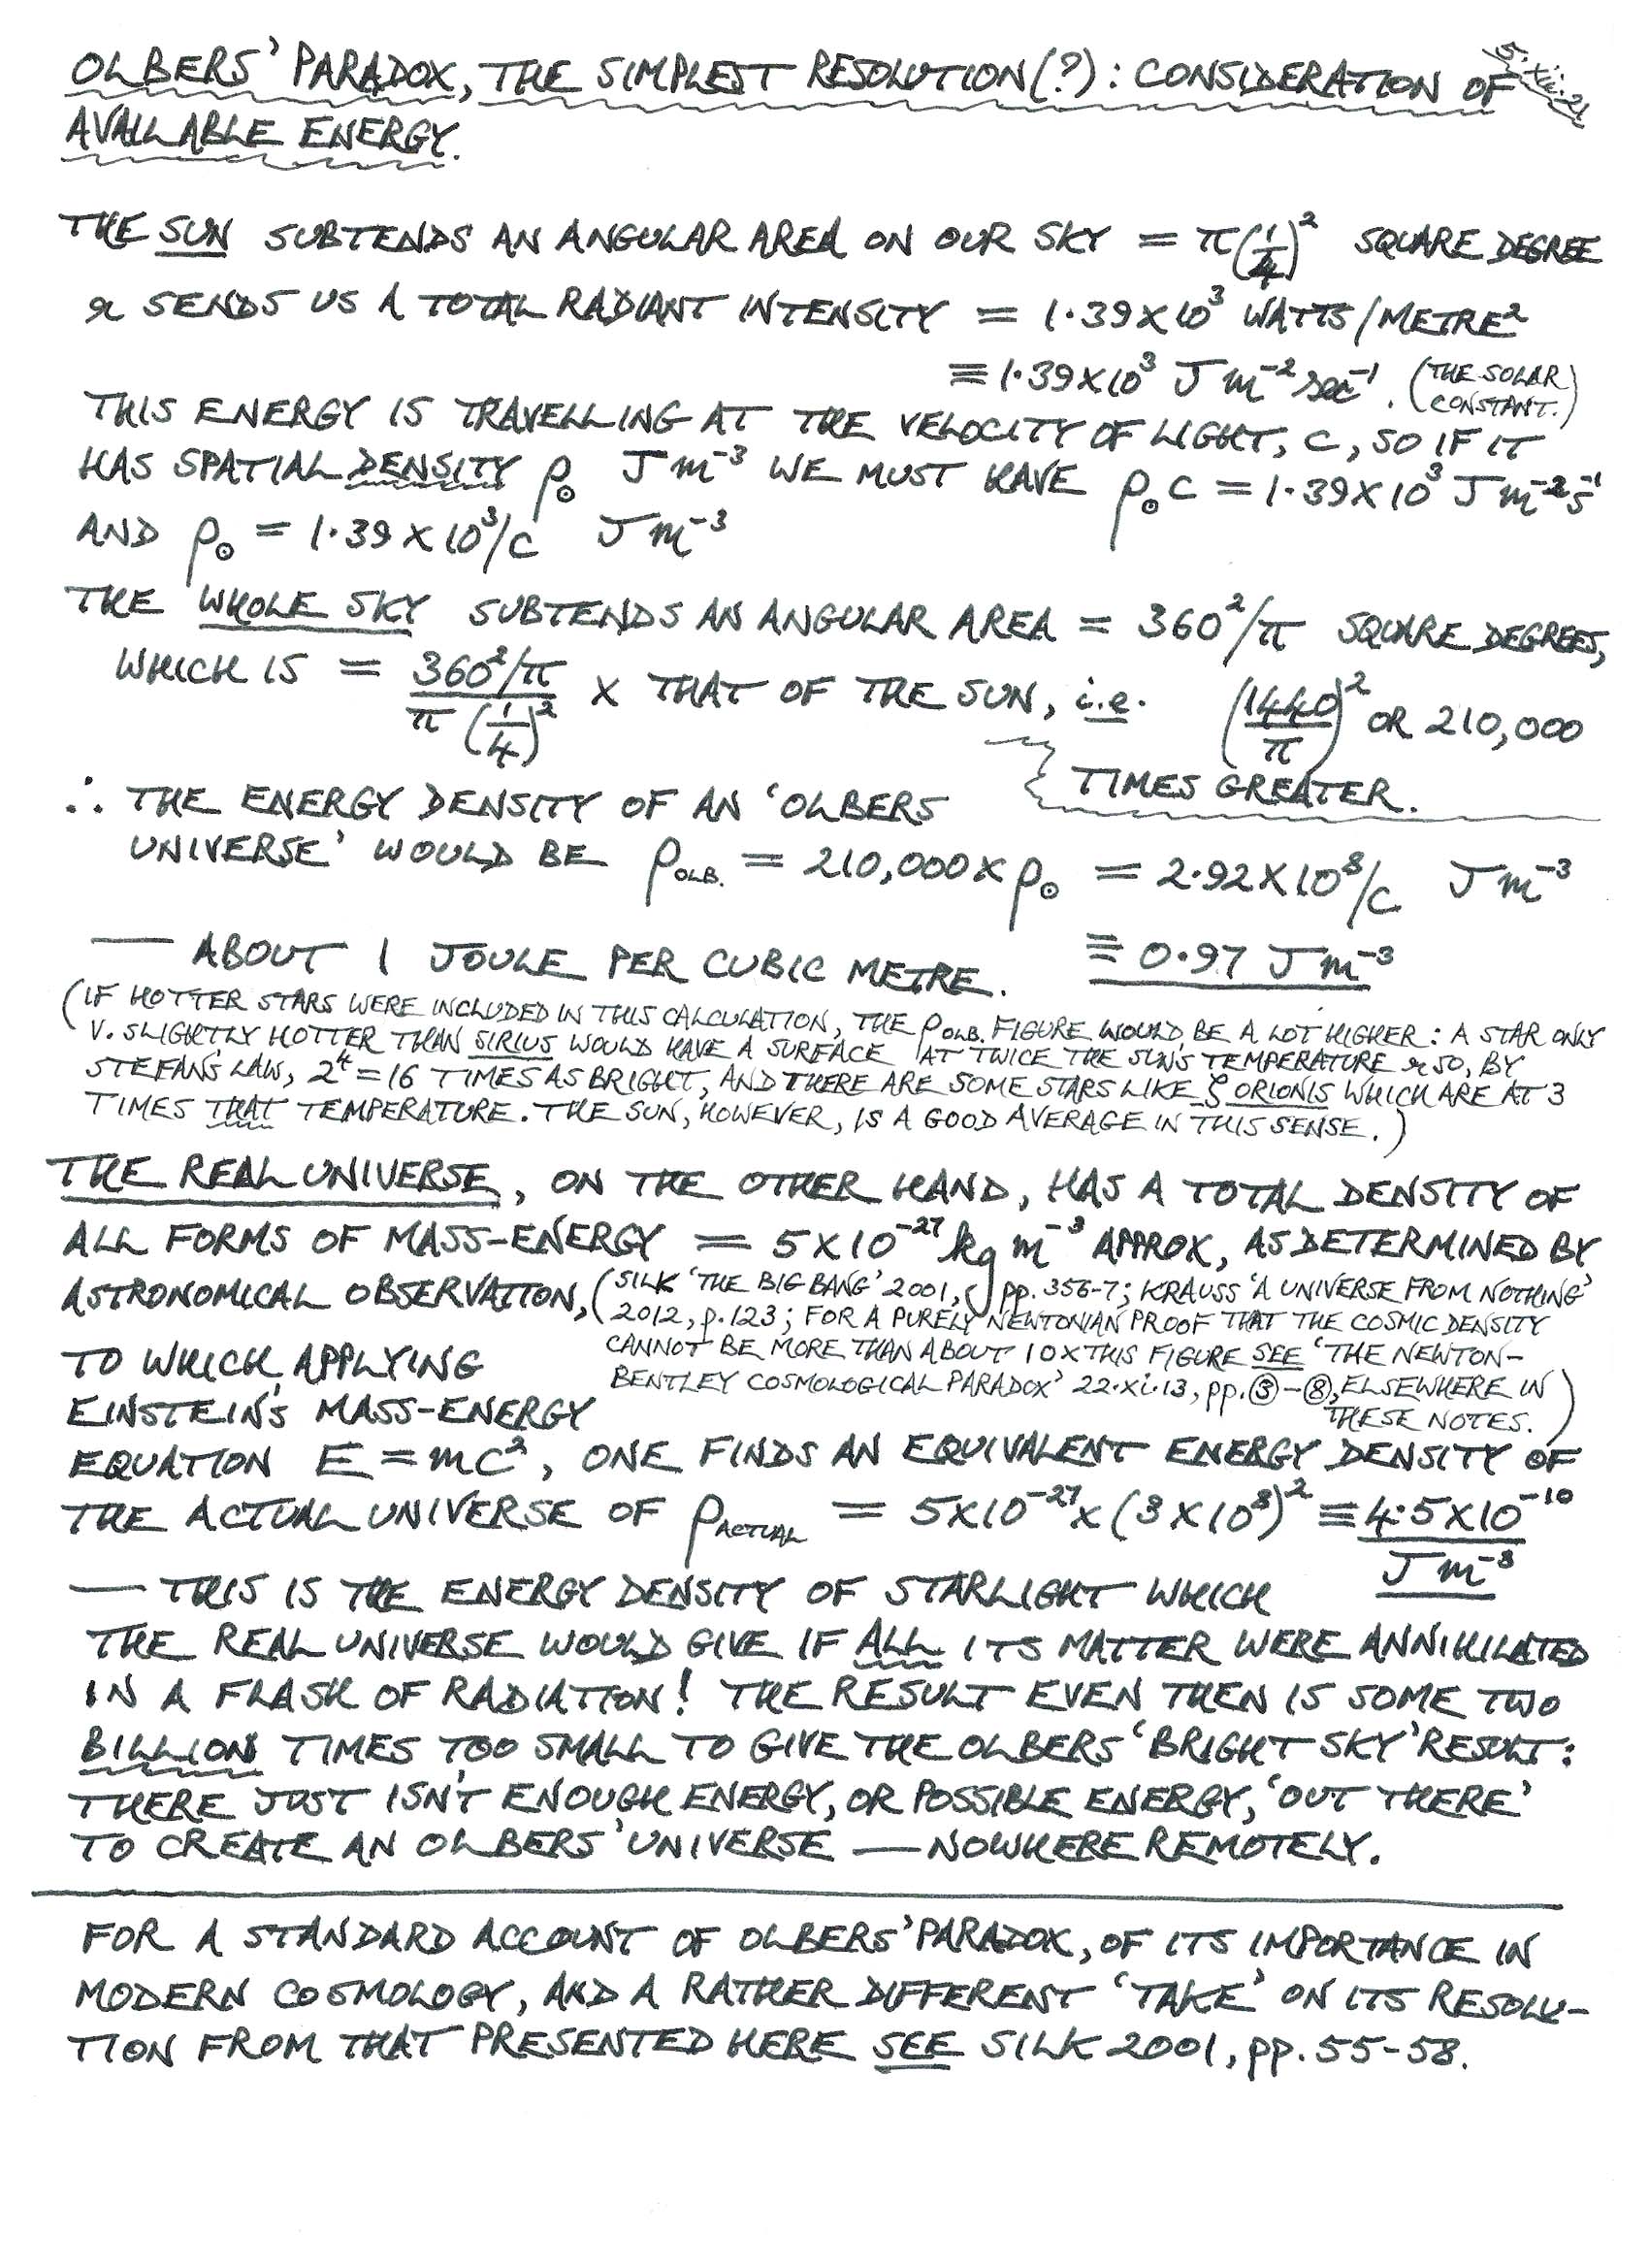 OLBERS' PARADOX, THE SIMPLEST RESOLUTION(?): CONSIDERATION OF
AVAILABLE ENERGY.
THE SUN SUBTENDS AN ANGULAR AREA ON OUR SKY = π(1/4)² SQUARE DEGREE
& SENDS US A TOTAL RADIANT INTENSITY = 1·39×10³ WATTS/METRE²
≡ 1·39×10³ J m⁻² sec⁻¹. (THE SOLAR CONSTANT.)
THIS ENERGY IS TRAVELLING AT THE VELOCITY OF LIGHT, C, SO IF IT
HAS SPATIAL DENSITY ρ☉ J m⁻³ WE MUST HAVE ρ☉ C = 1·39×10³ J m⁻² s⁻¹
AND ρ☉ = 1·39×10³/C J m⁻³
THE WHOLE SKY SUBTENDS AN ANGULAR AREA = 360²/π SQUARE DEGREES,
WHICH IS = (360²/π)/(π(1/4)²) × THAT OF THE SUN, i.e. (1440/π)² OR 210,000
TIMES GREATER.
∴ THE ENERGY DENSITY OF AN 'OLBERS
UNIVERSE' WOULD BE ρOLB. = 210,000 × ρ☉ = 2·92×10⁸/C J m⁻³
— ABOUT 1 JOULE PER CUBIC METRE. ≡ 0·97 J m⁻³
(IF HOTTER STARS WERE INCLUDED IN THIS CALCULATION, THE ρOLB. FIGURE WOULD BE A LOT HIGHER: A STAR ONLY
V. SLIGHTLY HOTTER THAN SIRIUS WOULD HAVE A SURFACE AT TWICE THE SUN'S TEMPERATURE & SO, BY
STEFAN'S LAW, 2⁴ = 16 TIMES AS BRIGHT, AND THERE ARE SOME STARS LIKE ζ ORIONIS WHICH ARE AT 3
TIMES THAT TEMPERATURE. THE SUN, HOWEVER, IS A GOOD AVERAGE IN THIS SENSE.)
THE REAL UNIVERSE, ON THE OTHER HAND, HAS A TOTAL DENSITY OF
ALL FORMS OF MASS-ENERGY = 5×10⁻²⁷ kg m⁻³ APPROX, AS DETERMINED BY
ASTRONOMICAL OBSERVATION, (SILK 'THE BIG BANG' 2001, pp. 356-7; KRAUSS 'A UNIVERSE FROM NOTHING'
2012, p.123; FOR A PURELY NEWTONIAN PROOF THAT THE COSMIC DENSITY
CANNOT BE MORE THAN ABOUT 10× THIS FIGURE SEE 'THE NEWTON-
BENTLEY COSMOLOGICAL PARADOX' 22·xi·13, pp. ③-⑧, ELSEWHERE IN
THESE NOTES.)
TO WHICH APPLYING
EINSTEIN'S MASS-ENERGY
EQUATION E = mc², ONE FINDS AN EQUIVALENT ENERGY DENSITY OF
THE ACTUAL UNIVERSE OF ρACTUAL = 5×10⁻²⁷ × (3×10⁸)² ≡ 4·5×10⁻¹⁰
J m⁻³
— THIS IS THE ENERGY DENSITY OF STARLIGHT WHICH
THE REAL UNIVERSE WOULD GIVE IF ALL ITS MATTER WERE ANNIHILATED
IN A FLASH OF RADIATION! THE RESULT EVEN THEN IS SOME TWO
BILLION TIMES TOO SMALL TO GIVE THE OLBERS 'BRIGHT SKY' RESULT:
THERE JUST ISN'T ENOUGH ENERGY, OR POSSIBLE ENERGY, 'OUT THERE'
TO CREATE AN OLBERS' UNIVERSE — NOWHERE REMOTELY.
FOR A STANDARD ACCOUNT OF OLBERS' PARADOX, OF ITS IMPORTANCE IN
MODERN COSMOLOGY, AND A RATHER DIFFERENT 'TAKE' ON ITS RESOLU-
TION FROM THAT PRESENTED HERE SEE SILK 2001, pp. 55-58.